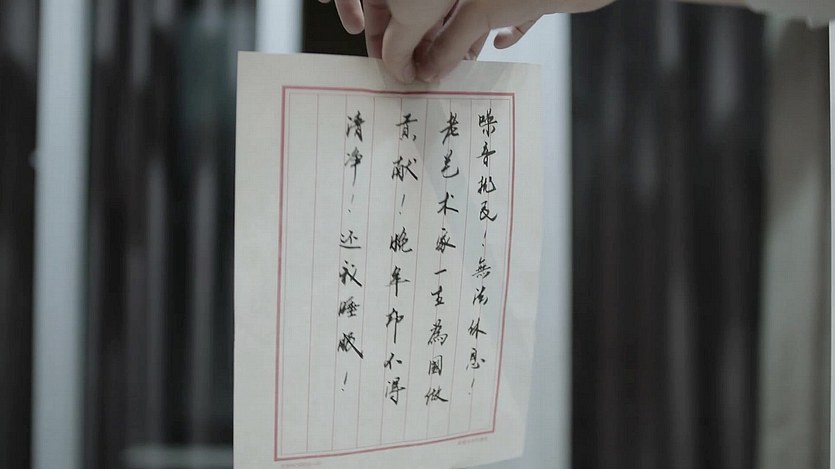 噪音扰民！無法休息！
老艺术家一直為國做
贡献！晚年却不得
清净！还我睡眠！